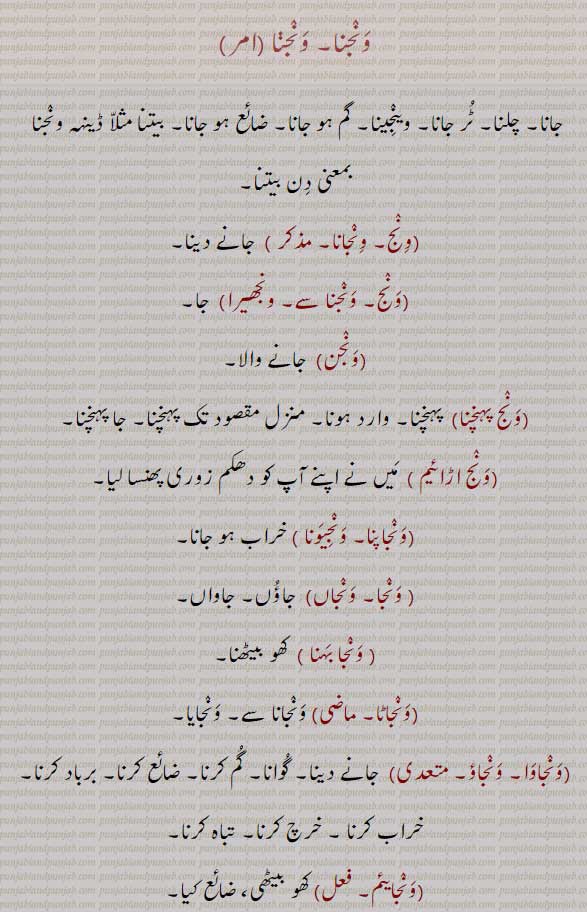 وَنْجنا۔ وَنْجݨا (امر)
جانا۔ چلنا۔ ٹُر جانا۔ وینْجینا۔ گم ہو جانا۔ ضائع ہو جانا۔ بیتنا مثلاً ڈینہہ ونْجنا
بمعنی دِن بیتنا۔
(وِنْج۔ وِنْجانا۔ مذکر) جانے دینا۔
(وَنْج۔ وَنْجنا سے۔ ونجھیرا) جا۔
(وَنْجن) جانے والا۔
(وَنْج پہنچنا) پہنچنا۔ وارد ہونا۔ منزل مقصود تک پہنچنا۔ جا پہنچنا۔
(وَنْج اڑائیم) مَیں نے اپنے آپ کو دھکم زوری پھنسا لیا۔
(وَنْجاپنا۔ وَنْجِیَونا) خراب ہو جانا۔
(وَنْجا۔ وَنْجاں) جاؤں۔ جاواں۔
(وَنْجا بَہنا) کھو بیٹھنا۔
(وَنْجاٹا۔ ماضی) وَنْجانا سے۔ وَنْجایا۔
(وَنْجاوَا۔ وَنْجاؤ۔ متعدی) جانے دینا۔ گوانا۔ گُم کرنا۔ ضائع کرنا۔ برباد کرنا۔
خراب کرنا ۔ خرچ کرنا۔ تباہ کرنا۔
(وَنْجایئم۔ فعل) کھو بیٹھی، ضائع کیا۔